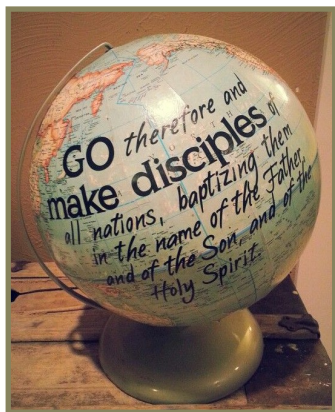 GO therefore and
make disciples of
all nations, baptizing them
in the name of the Father,
and of the Son, and of the
Holy Spirit.